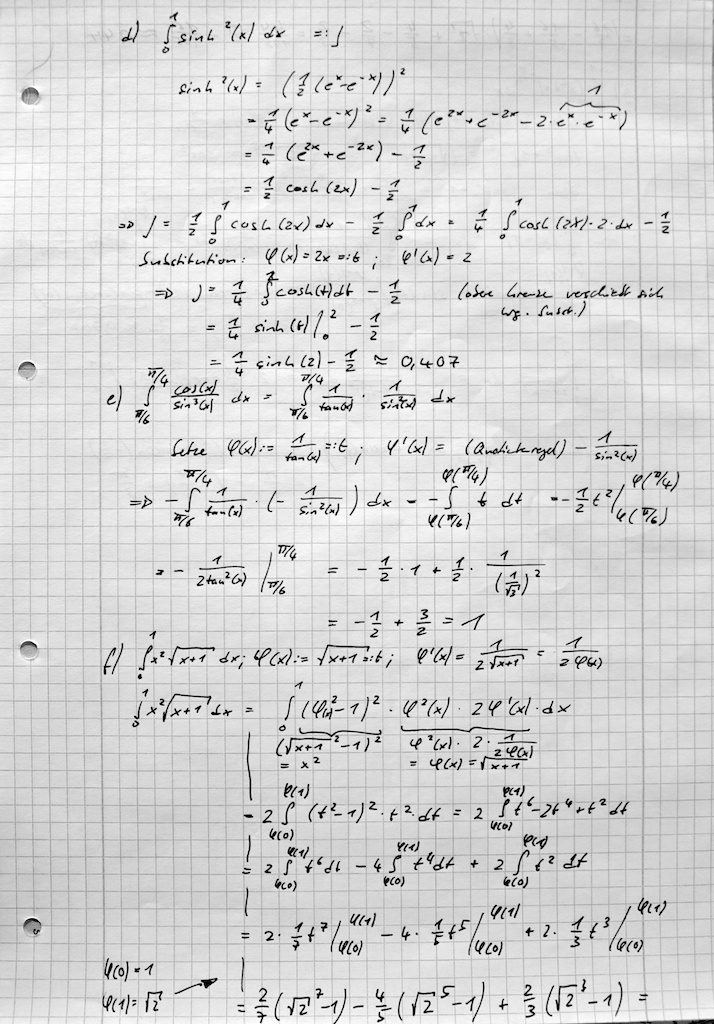 d) ∫₀¹ sinh²(x) dx =: J
sinh²(x) = (1/2 (eˣ-e⁻ˣ))²
= 1/4 (eˣ-e⁻ˣ)² = 1/4 (e²ˣ+e⁻²ˣ-2·eˣ·e⁻ˣ) 1
= 1/4 (e²ˣ+e⁻²ˣ) - 1/2
= 1/2 cosh(2x) - 1/2
=> J = 1/2 ∫₀¹ cosh(2x) dx - 1/2 ∫₀¹ dx = 1/4 ∫₀¹ cosh(2x)·2·dx - 1/2
Substitution: φ(x) = 2x =: t ; φ'(x) = 2
=> J = 1/4 ∫₀² cosh(t) dt - 1/2 (obere Grenze verschiebt sich
wg. Subst.)
= 1/4 sinh(t) |₀² - 1/2
= 1/4 sinh(2) - 1/2 ≈ 0,407
e) ∫_{π/6}^{π/4} cos(x)/sin³(x) dx = ∫_{π/6}^{π/4} 1/tan(x) · 1/sin²(x) dx
Setze φ(x) := 1/tan(x) =: t ; φ'(x) = (Quotientenregel) - 1/sin²(x)
=> -∫_{π/6}^{π/4} 1/tan(x) · (- 1/sin²(x)) dx = -∫_{φ(π/6)}^{φ(π/4)} t dt = -1/2 t² |_{φ(π/6)}^{φ(π/4)}
= - 1/(2tan²(x)) |_{π/6}^{π/4} = - 1/2 · 1 + 1/2 · 1/(1/√3)²
= - 1/2 + 3/2 = 1
f) ∫₀¹ x²√(x+1) dx; φ(x) := √(x+1) =: t; φ'(x) = 1/(2√(x+1)) = 1/(2φ(x))
∫₀¹ x²√(x+1) dx = ∫₀¹ (φ(x)²-1)² · φ²(x) · 2φ'(x) · dx
(√(x+1)²-1)² φ²(x) · 2 · 1/(2φ(x))
= x² = φ(x) = √(x+1)
= 2 ∫_{φ(0)}^{φ(1)} (t²-1)² · t² dt = 2 ∫_{φ(0)}^{φ(1)} t⁶-2t⁴+t² dt
= 2 ∫_{φ(0)}^{φ(1)} t⁶ dt - 4 ∫_{φ(0)}^{φ(1)} t⁴ dt + 2 ∫_{φ(0)}^{φ(1)} t² dt
= 2 · 1/7 t⁷ |_{φ(0)}^{φ(1)} - 4 · 1/5 t⁵ |_{φ(0)}^{φ(1)} + 2 · 1/3 t³ |_{φ(0)}^{φ(1)}
φ(0) = 1
φ(1) = √2 → = 2/7 (√2⁷-1) - 4/5 (√2⁵-1) + 2/3 (√2³-1) =